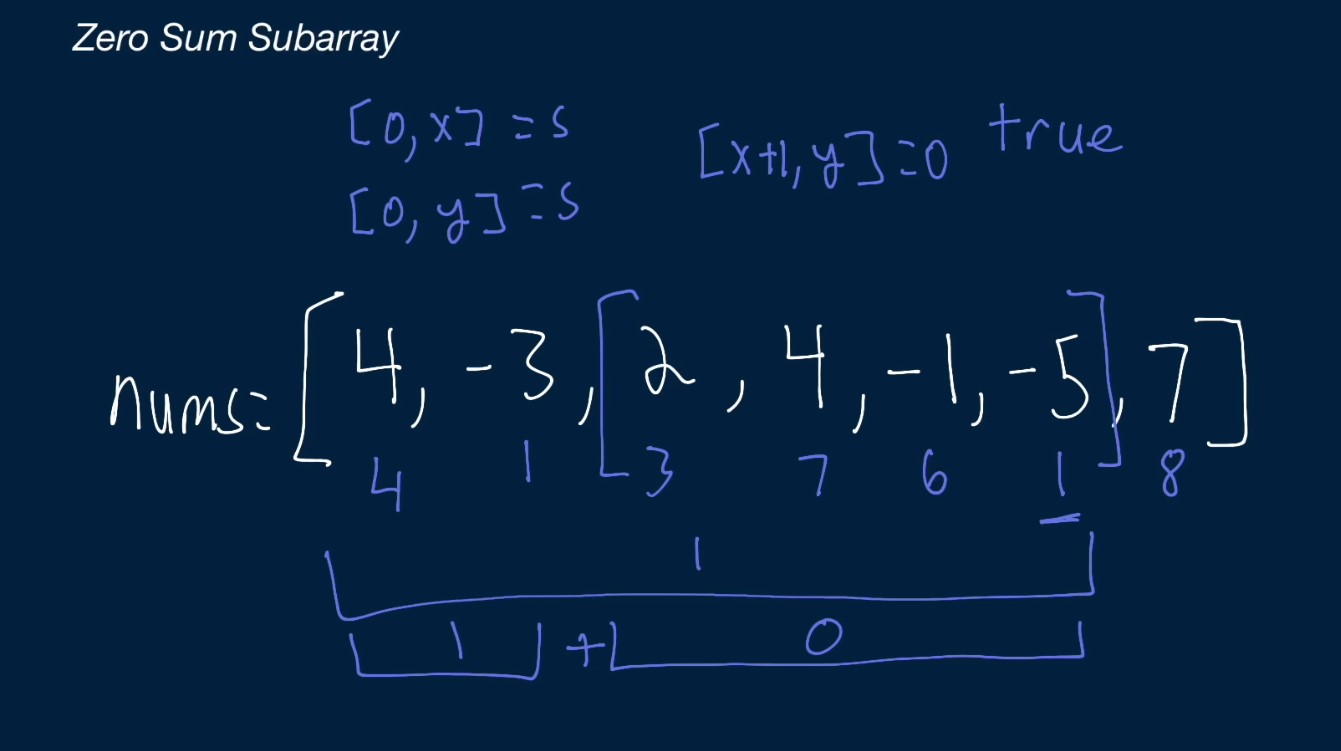 Zero Sum Subarray
[0,x] = s
[0,y] = s
[x+1,y] = 0 true
nums = [4, -3, [2, 4, -1, -5], 7]
4 1 3 7 6 1 8
1
1 + 0